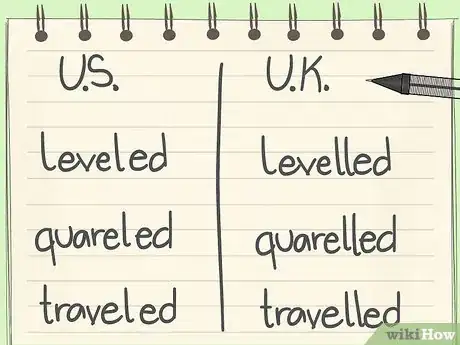 U.S. U.K.
leveled levelled
quareled quarelled
traveled travelled
wikiHow